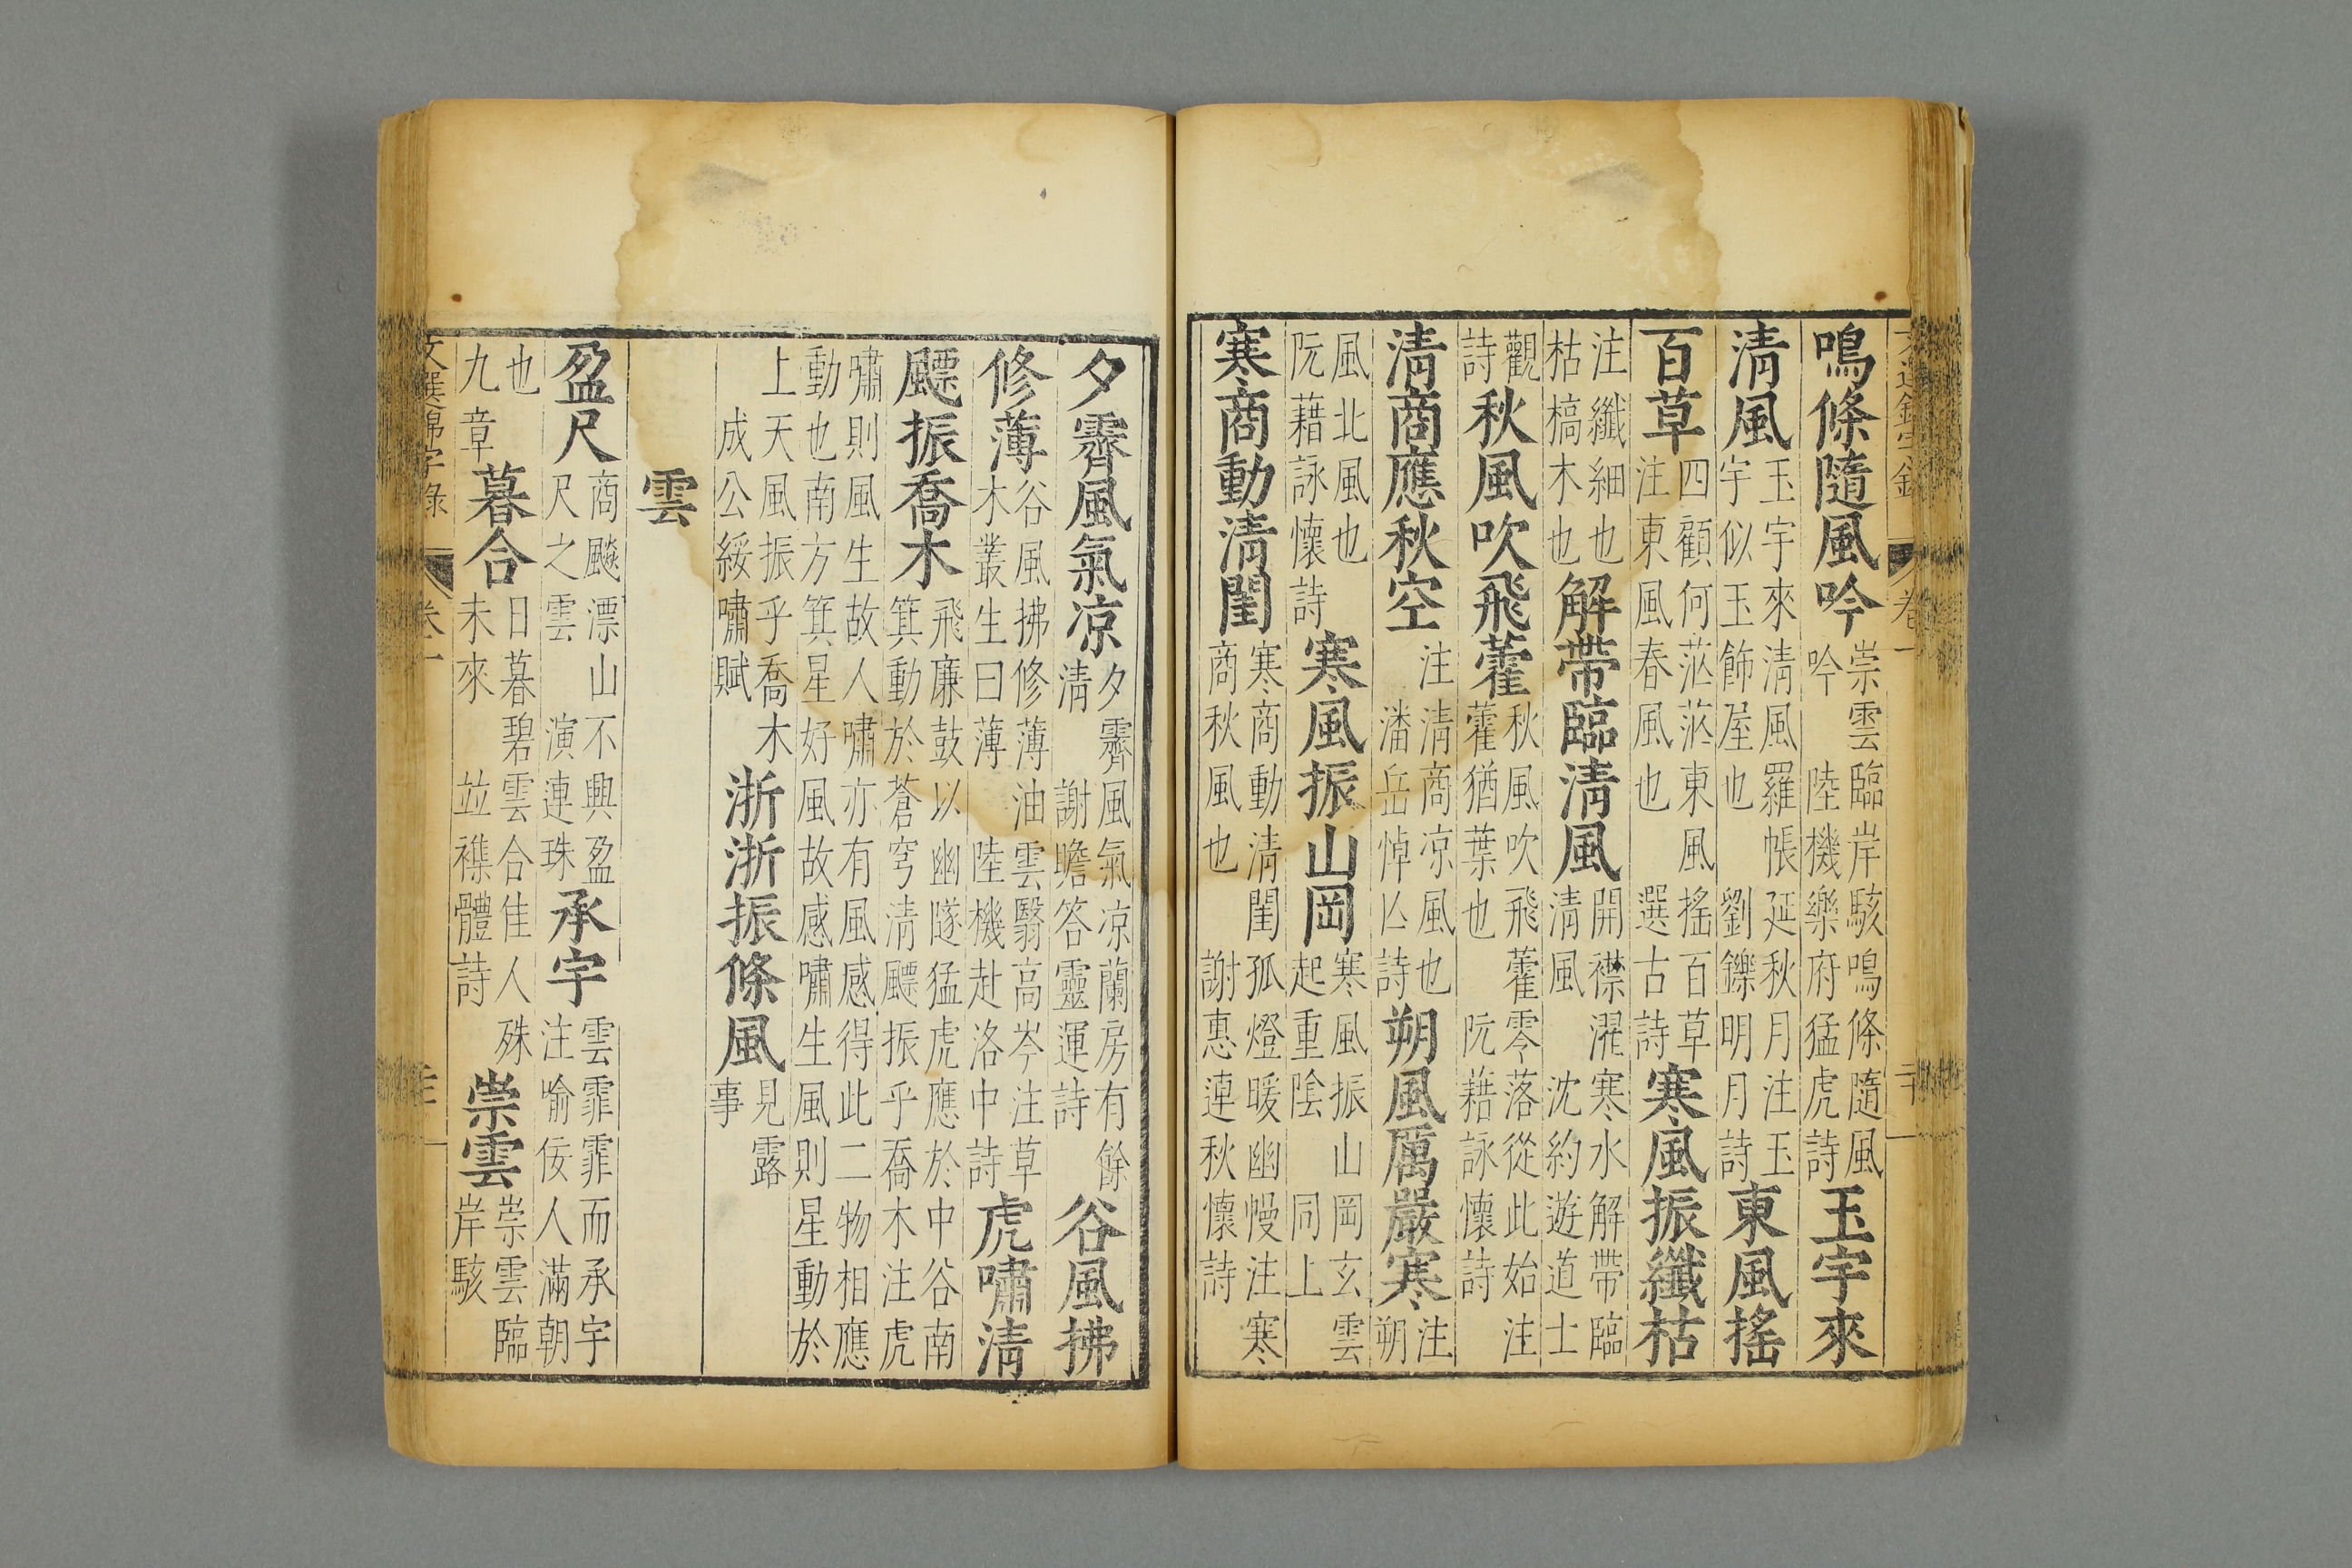 鳴條隨風吟 崇雲臨岸駭鳴條隨風吟 陸機樂府猛虎詩 玉宇來
清風 玉宇來清風羅帳延秋月注玉宇似玉飾屋也 劉鑠明月詩 東風搖
百草 四顧何茫茫東風搖百草注東風春風也 選古詩 寒風振纖枯
注纖細也枯槁木也 解帶臨清風 開襟濯寒水解帶臨清風 沈約遊道士
觀詩 秋風吹飛藿 秋風吹飛藿零落從此始注藿猶葉也 阮藉詠懷詩
清商應秋空 注清商凉風也 潘岳悼亾詩 朔風厲嚴寒 注朔
風北風也阮藉詠懷詩 寒風振山岡 寒風振山岡玄雲起重陰 同上
寒商動清閨 寒商動清閨孤燈暖幽幔注寒商秋風也 謝惠連秋懷詩
夕霽風氣凉 夕霽風氣凉蘭房有餘清 謝瞻答靈運詩 谷風拂
修薄 谷風拂修薄油雲翳高岑注草木叢生曰薄 陸機赴洛中詩 虎嘯清
飃振喬木 飛廉鼓以幽隧猛虎應於中谷南箕動於蒼穹清飃振乎喬木注虎
嘯則風生故人嘯亦有風感得此二物相應動也南方箕星好風故感嘯生風則星動於
上天風振乎喬木 成公綏嘯賦 浙浙振條風 見露事
雲
盈尺 商飈漂山不興盈尺之雲 演連珠 承宇 雲霏霏而承宇注喻佞人滿朝
也九章 暮合 日暮碧雲合佳人殊未來 竝襍體詩 崇雲 崇雲臨岸駭
文選錦字錄 卷一